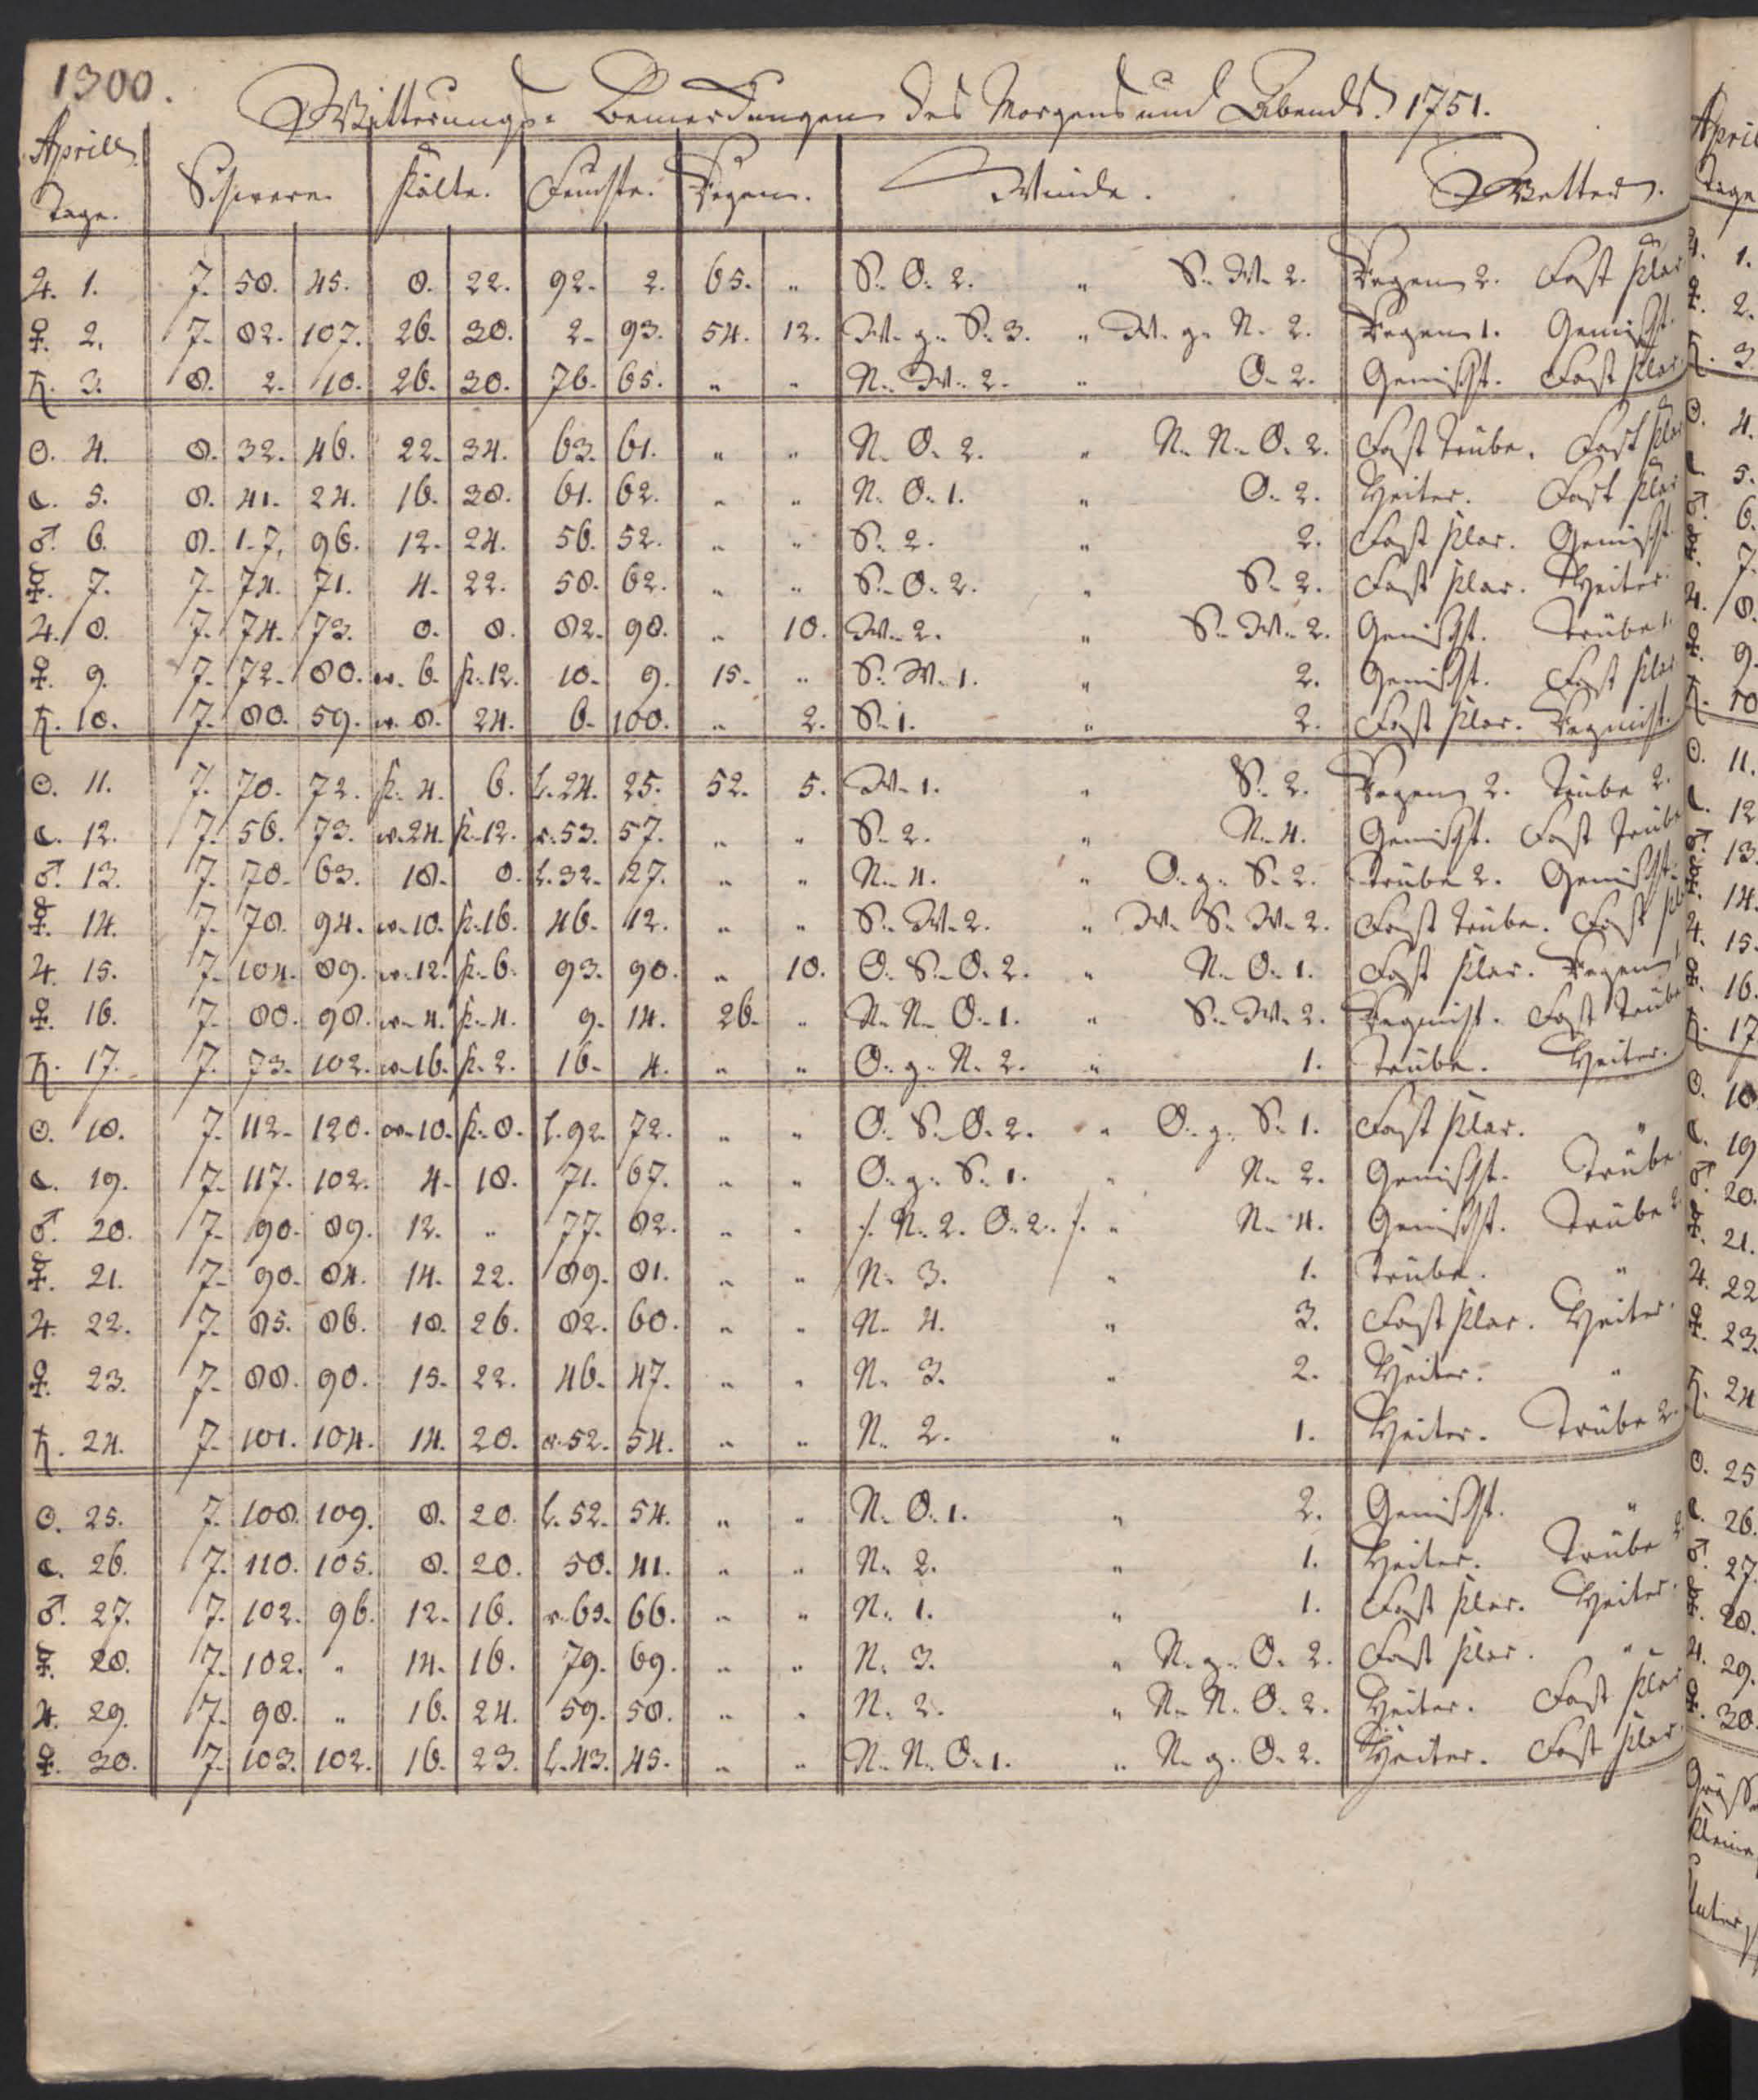 1300.
Witterungs-Bemerckungen des Morgens und Abends. 1751.
Aprill Tage. Schwere. Kälte. Feuchte. Regen. Winde. Wetter.
♃. 1. 7. 58. 45. 8. 22. 92. 2. 65. „ S. O. 2. „ S. W. 2. Regen 2. Fast klar
♀. 2. 7. 82. 107. 26. 30. 2. 93. 54. 12. W. g. S. 3. „ W. g. N. 2. Regen 1. Gemischt.
♄. 3. 8. 2. 10. 26. 30. 76. 65. „ „ N. W. 2. „ O. 2. Gemischt. Fast klar
☉. 4. 8. 32. 46. 22. 34. 63. 61. „ „ N. O. 2. „ N. N. O. 2. Fast trübe. Fast klar
☾. 5. 8. 41. 24. 16. 38. 61. 62. „ „ N. O. 1. „ O. 2. Heiter. Fast klar
♂. 6. 8. 1-7. 96. 12. 24. 56. 52. „ „ S. 2. „ 2. Fast klar. Gemischt
☿. 7. 7. 74. 71. 4. 22. 58. 62. „ „ S. O. 2. „ S. 2. Fast klar. Heiter.
♃. 8. 7. 74. 73. 0. 8. 82. 98. „ 10. W. 2. „ S. W. 2. Gemischt. Trübe 1.
♀. 9. 7. 72. 80. w. 6. k. 12. 10. 9. 15. „ S. W. 1. „ 2. Gemischt. Fast klar
♄. 10. 7. 80. 59. w. 8. 24. 6. 100. „ 2. S. 1. „ 2. Fast klar. Regnicht.
☉. 11. 7. 70. 72. k. 4. 6. l. 24. 25. 52. 5. W. 1. „ S. 2. Regen 2. Trübe 2.
☾. 12. 7. 56. 73. w. 24. k. 12. r. 53. 57. „ „ S. 2. „ N. 4. Gemischt. Fast trübe
♂. 13. 7. 70. 63. 18. 0. l. 32. 27. „ „ N. 4. „ O. g. S. 2. Trübe 2. Gemischt.
☿. 14. 7. 78. 94. w. 10. k. 16. 46. 12. „ „ S. W. 2. „ W. S. W. 2. Fast trübe. Fast kl
♃. 15. 7. 104. 89. w. 12. k. 6. 93. 90. „ 10. O. S. O. 2. „ N. O. 1. Fast klar. Regen 1
♀. 16. 7. 88. 98. w. 4. k. 4. 9. 14. 26. „ N. N. O. 1. „ S. W. 2. Regnicht. Fast trübe
♄. 17. 7. 73. 102. w. 16. k. 2. 16. 4. „ „ O. g. N. 2. „ 1. Trübe. Heiter.
☉. 18. 7. 112. 120. w. 10. k. 8. l. 92. 72. „ „ O. S. O. 2. „ O. g. S. 1. Fast klar. „
☾. 19. 7. 117. 102. 4. 18. 71. 67. „ „ O. g. S. 1. „ N. 2. Gemischt. Trübe
♂. 20. 7. 90. 89. 12. „ 77. 82. „ „ /. N. 2. O. 2. /. „ N. 4. Gemischt. Trübe 2
☿. 21. 7. 90. 84. 14. 22. 89. 81. „ „ N. 3. „ 1. Trübe. „
♃. 22. 7. 85. 86. 18. 26. 82. 60. „ „ N. 4. „ 3. Fast klar. Heiter.
♀. 23. 7. 88. 90. 15. 22. 46. 47. „ „ N. 3. „ 2. Heiter. „
♄. 24. 7. 101. 104. 14. 20. r. 52. 54. „ „ N. 2. „ 1. Heiter. Trübe 2.
☉. 25. 7. 108. 109. 8. 20. l. 52. 54. „ „ N. O. 1. „ 2. Gemischt. „
☾. 26. 7. 110. 105. 8. 20. 50. 41. „ „ N. 2. „ 1. Heiter. Trübe 2
♂. 27. 7. 102. 96. 12. 16. r. 63. 66. „ „ N. 1. „ 1. Fast klar. Heiter.
☿. 28. 7. 102. „ 14. 16. 79. 69. „ „ N. 3. „ N. g. O. 2. Fast klar. „
♃. 29. 7. 98. „ 16. 24. 59. 58. „ „ N. 2. „ N. N. O. 2. Heiter. Fast klar
♀. 30. 7. 103. 102. 16. 23. l. 43. 45. „ „ N. N. O. 1. „ N. g. O. 2. Heiter. Fast klar.